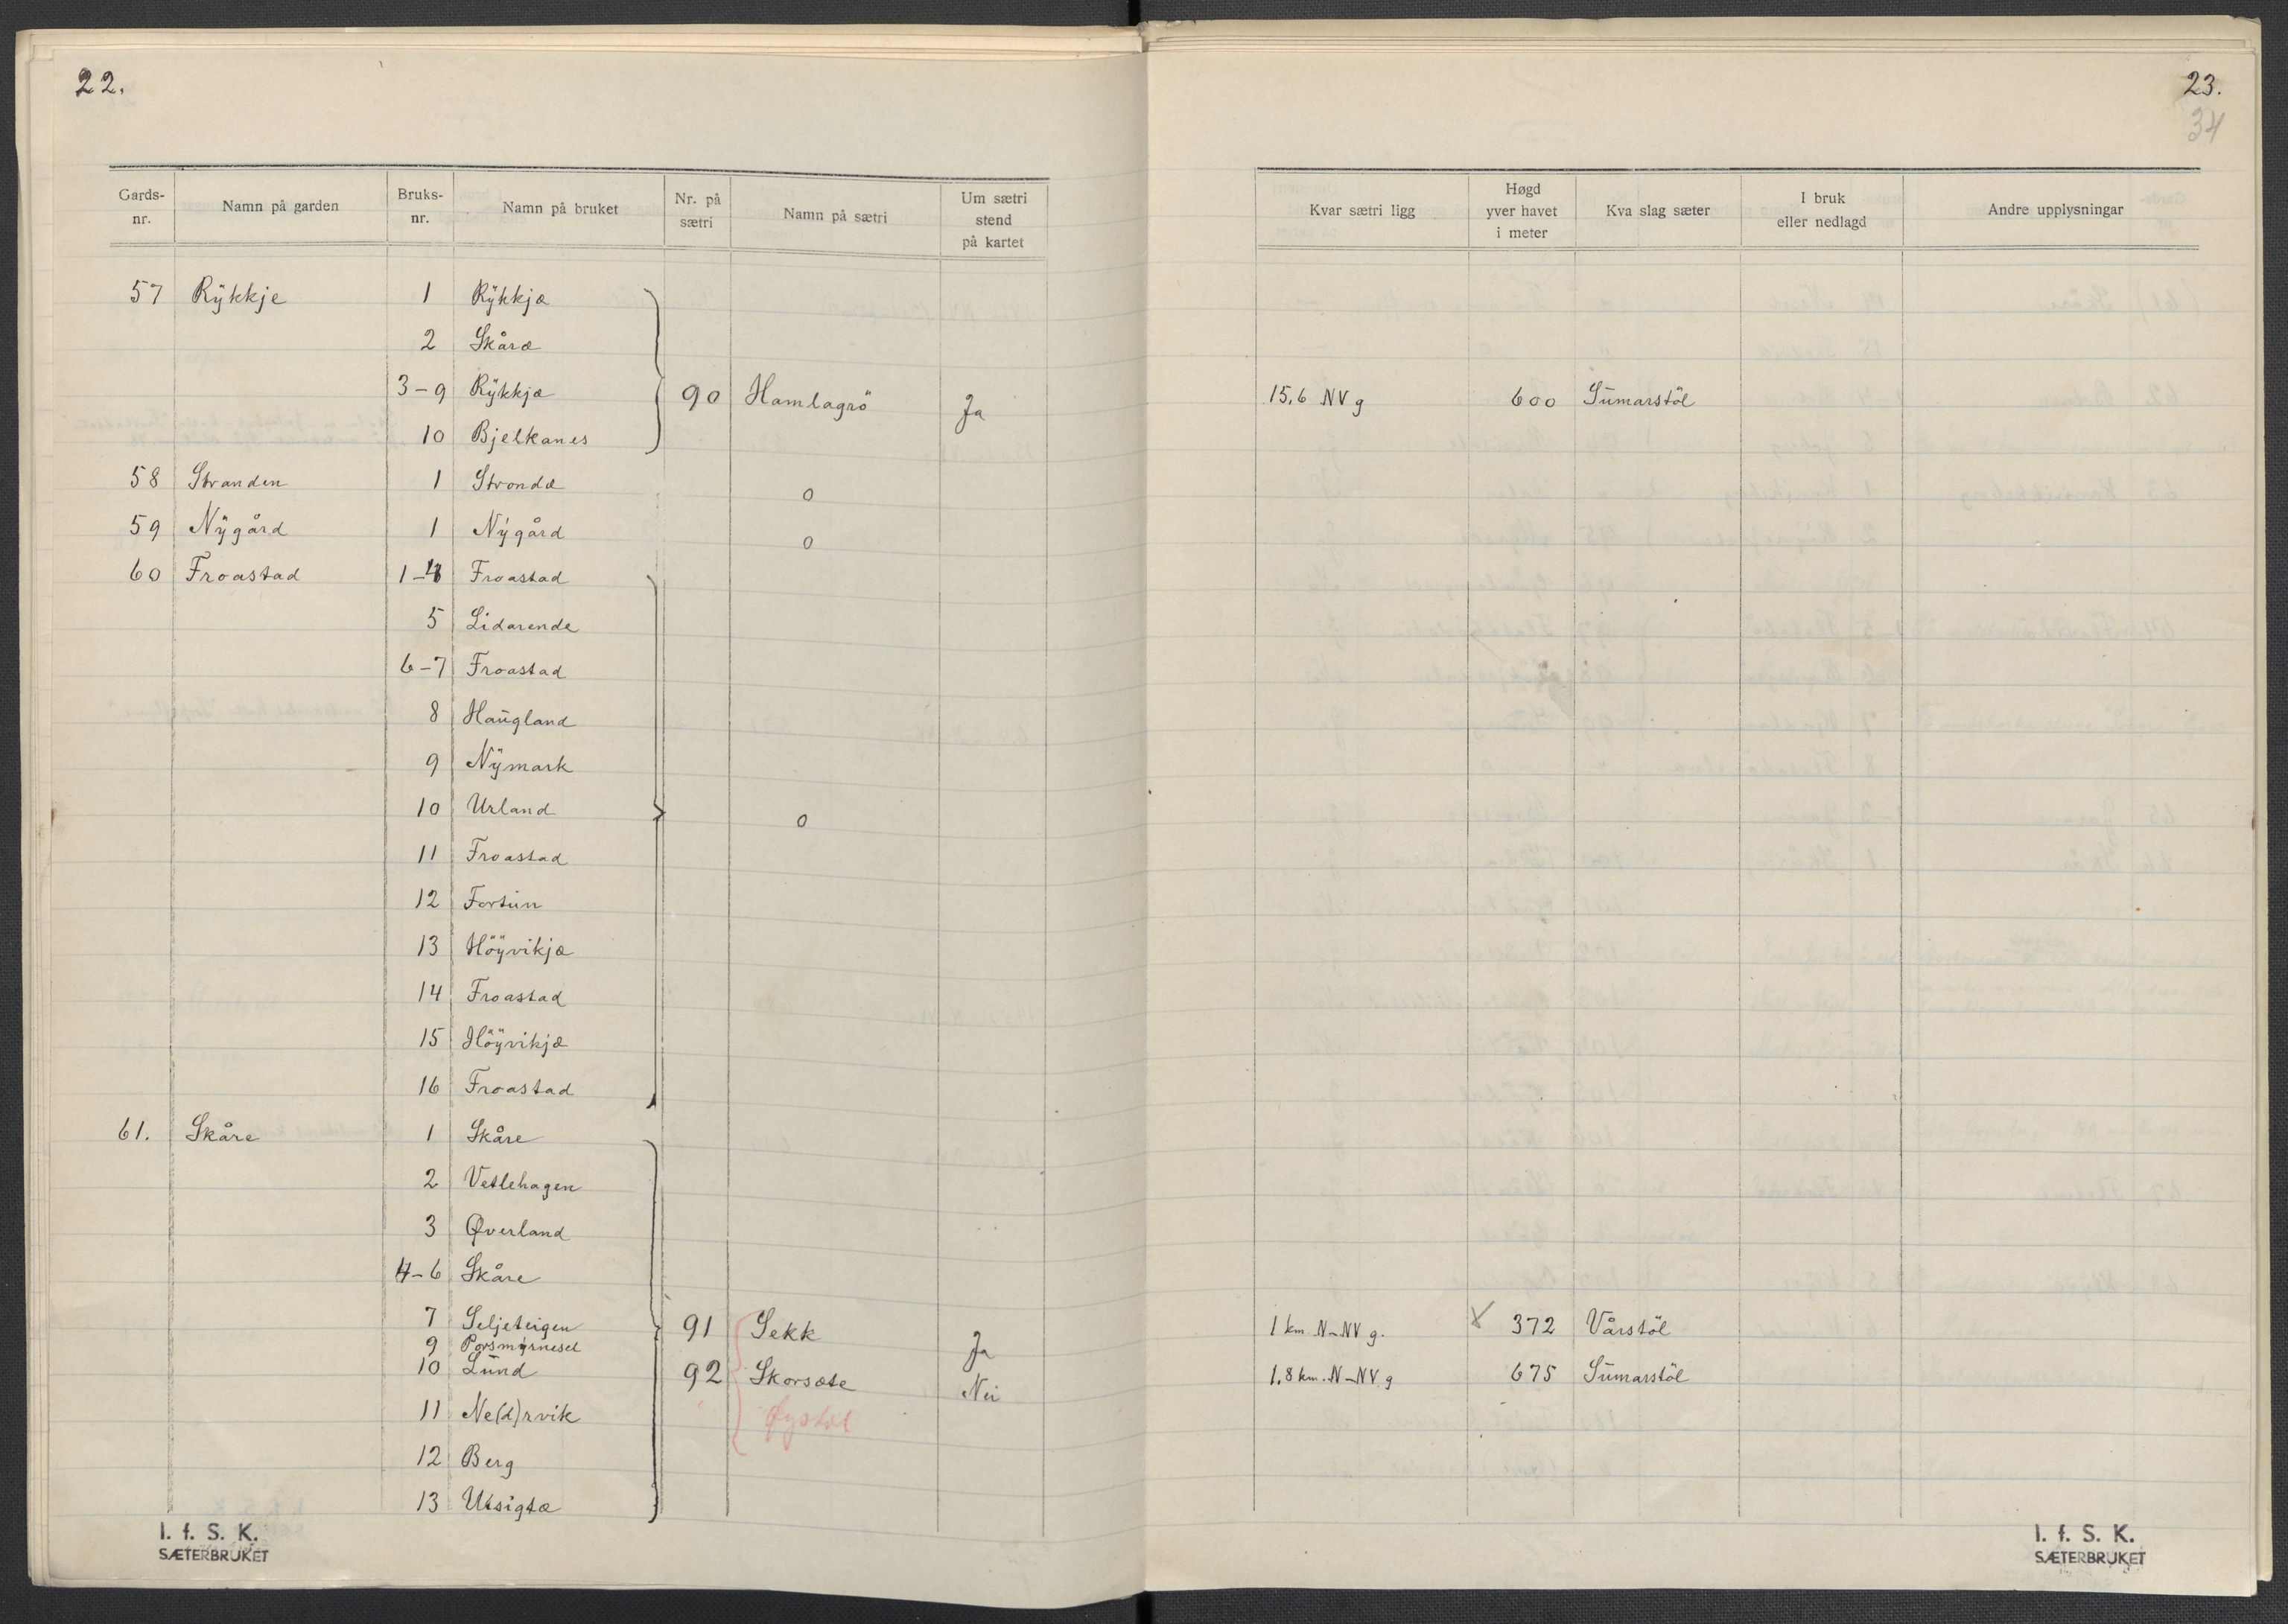 22.
Gards-nr. Namn på garden Bruks-nr. Namn på bruket Nr. på sætri Namn på sætri Um sætri stend på kartet
57 Rÿkkje 1 Rÿkkjæ
2 Skåræ
3-9 Rÿkkjæ 90 Hamlagrö Ja
10 Bjelkanes
58 Stranden 1 Strondæ o
59 Nÿgård 1 Nÿgård o
60 Froastad 1-4 Froastad
5 Lidarende
6-7 Froastad
8 Haūgland
9 Nÿmark
10 Urland o
11 Froastad
12 Fortūn
13 Höÿvikjæ
14 Froastad
15 Höÿvikjæ
16 Froastad
61. Skåre 1 Skåre
2 Vetlehagen
3 Øverland
4-6 Skåre
7 Seljeteigen 91 Sekk Ja
9
10 Lūnd 92 Skorsæte Nei
11 Ne(d)rvik Øystøl
12 Berg
13 Utsigtæ
I. f. S. K.
SÆTERBRUKET
23.
34
Kvar sætri ligg Høgd yver havet i meter Kva slag sæter I bruk eller nedlagd Andre upplysningar
15,6 NV g 600 Sūmarstöl
1 km. N-NV g. X 372 Vårstöl
1,8 km. N-NV. g 675 Sūmarstöl
I. f. S. K.
SÆTERBRUKET